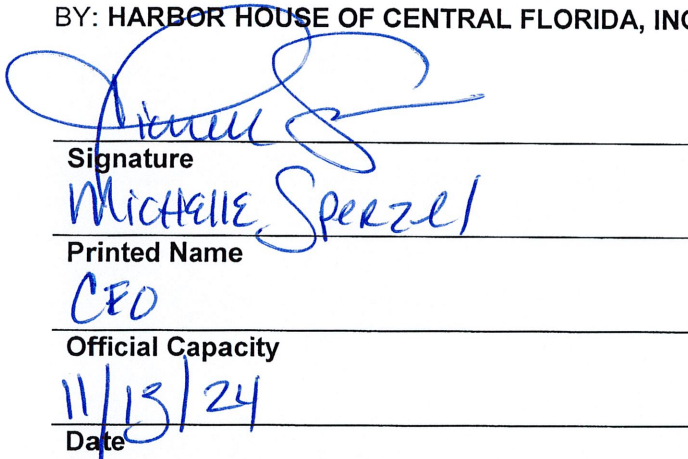 BY: HARBOR HOUSE OF CENTRAL FLORIDA, INC
Signature
Michelle Sperzel
Printed Name
CEO
Official Capacity
11/13/24
Date